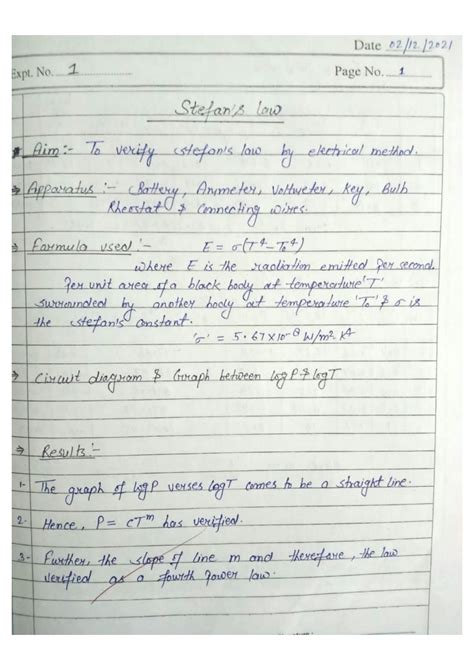 Date 02/12/2021
Expt. No. 1
Page No. 1
Stefan's law
Aim:- To verify stefan's law by electrical method.
Apparatus :- Battery, Ammeter, Voltmeter, Key, Bulb
Rheostat & Connecting wires.
Formula used :- E = σ(T⁴-T₀⁴)
where E is the radiation emitted per second.
Per unit area of a black body at temperature 'T'
surrounded by another body at temperature 'T₀' & σ is
the stefan's constant.
'σ' = 5.67x10⁻⁸ W/m². K⁴
Circuit diagram & Graph between logP & logT
Results :-
1- The graph of logP verses logT comes to be a straight line.
2- Hence, P = CTᵐ has verified.
3- Further, the slope of line m and therefore, the law
verified as a fourth power law.